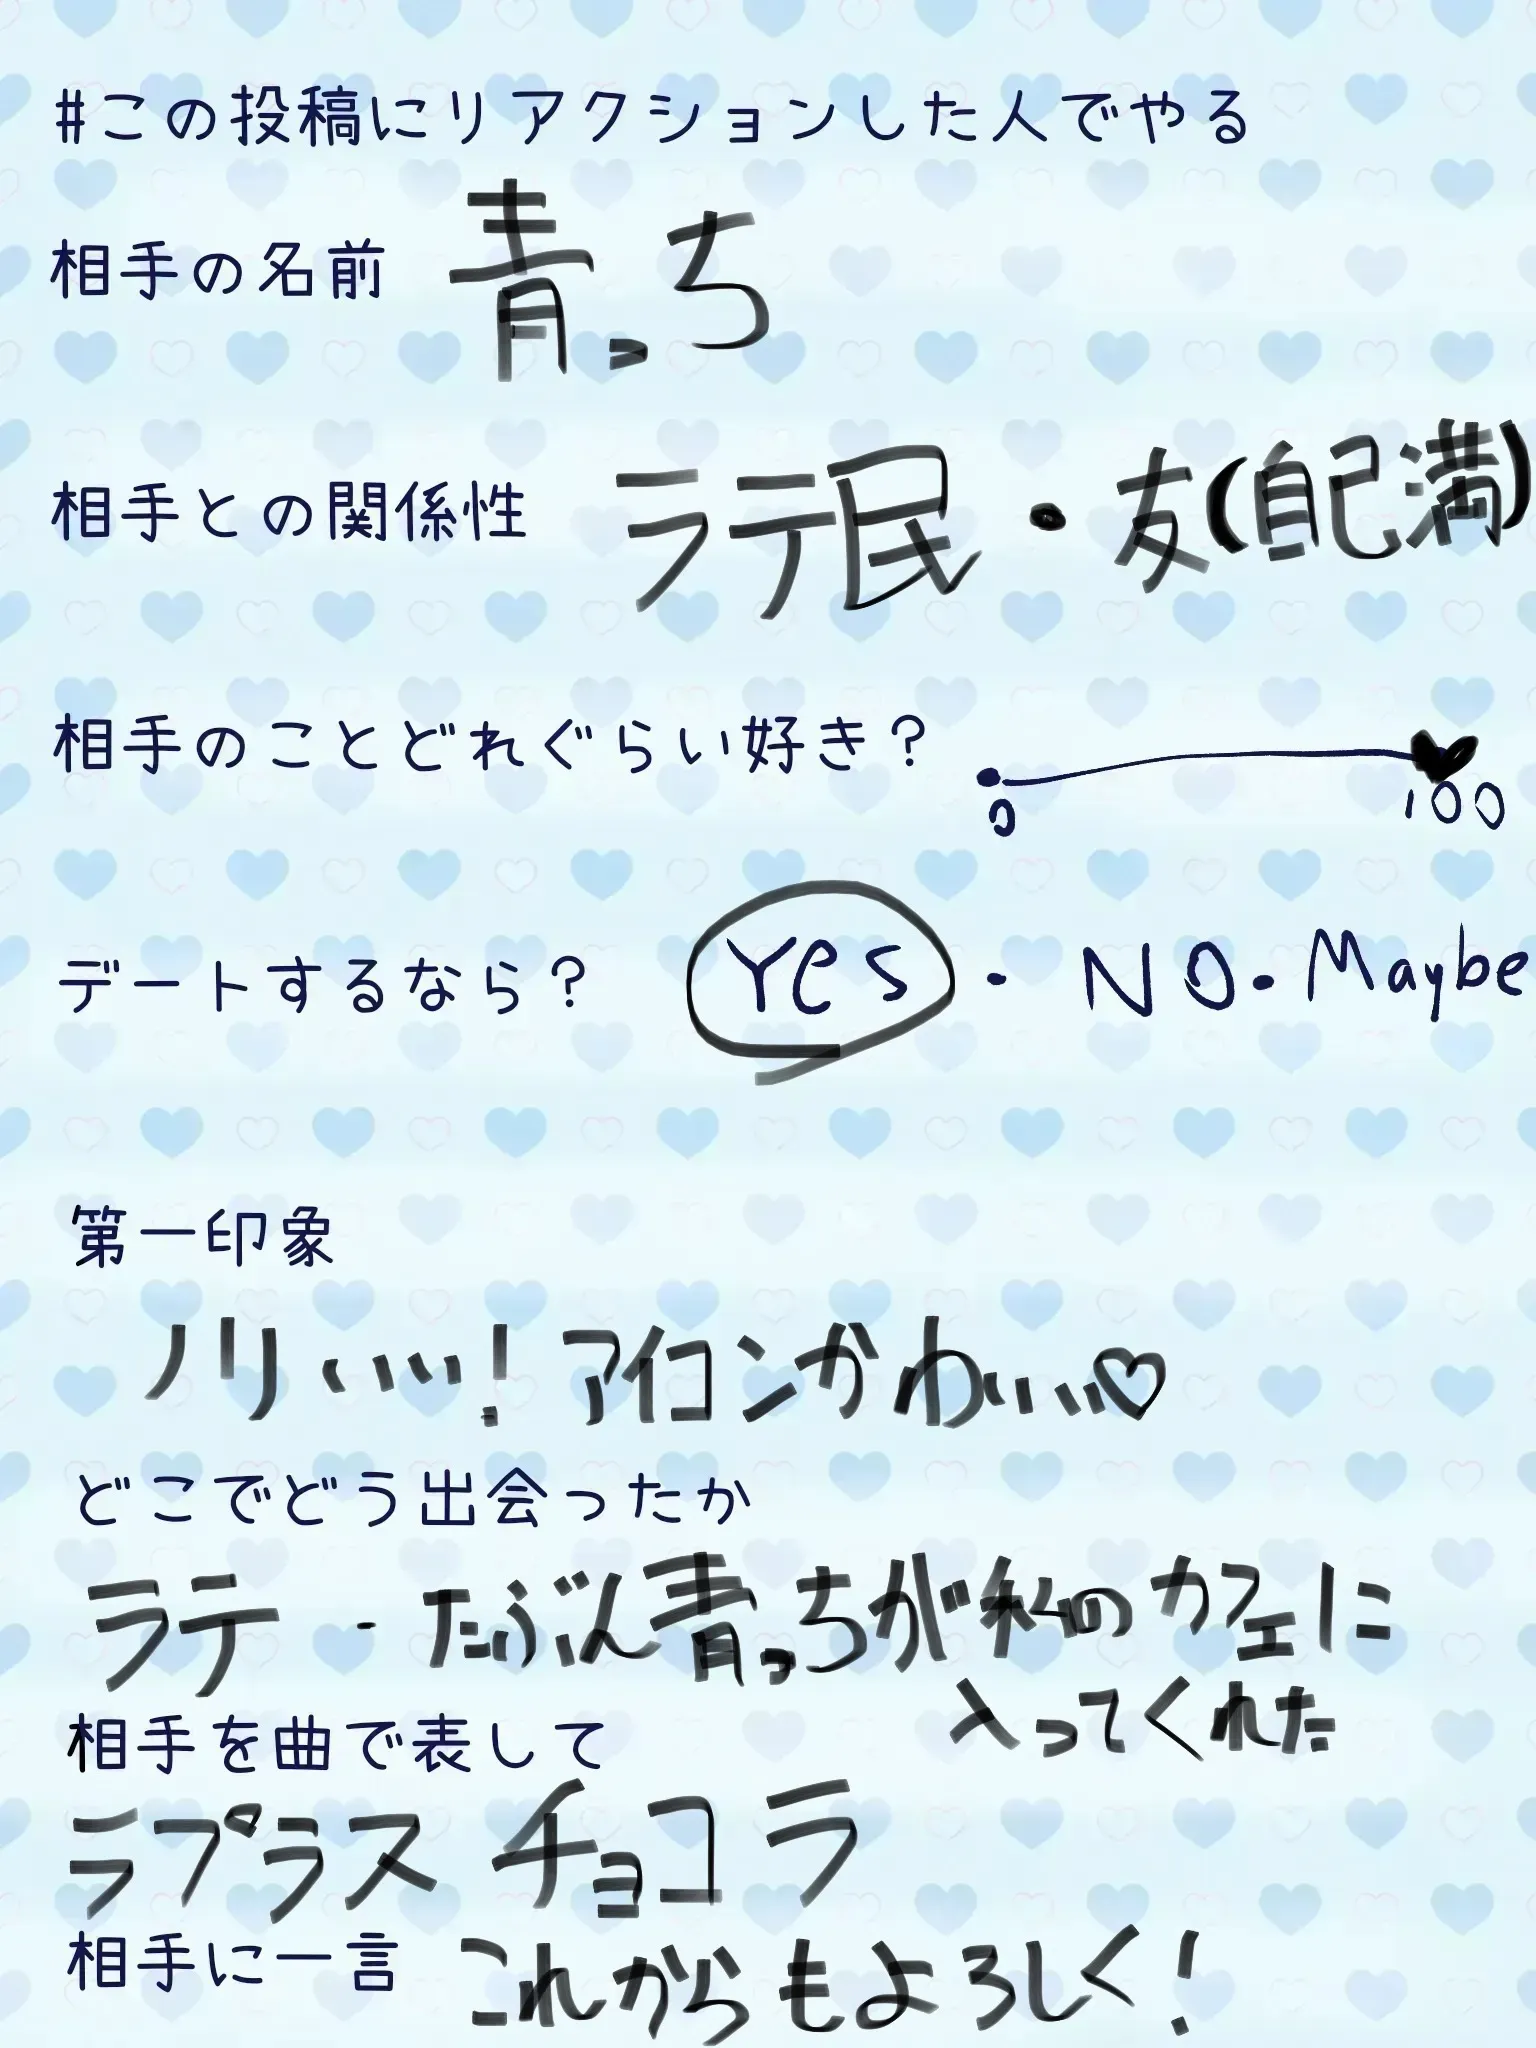 #この投稿にリアクションした人でやる
相手の名前 青っち
相手との関係性 ラテ民・友(自己満)
相手のことどれぐらい好き?
0 100
デートするなら? Yes・NO・Maybe
第一印象
ノリいい!アイコンかわいい♡
どこでどう出会ったか
ラテ - たぶん青っちが私のカフェに
入ってくれた
相手を曲で表して
ラプラス チョコラ
相手に一言 これからもよろしく!